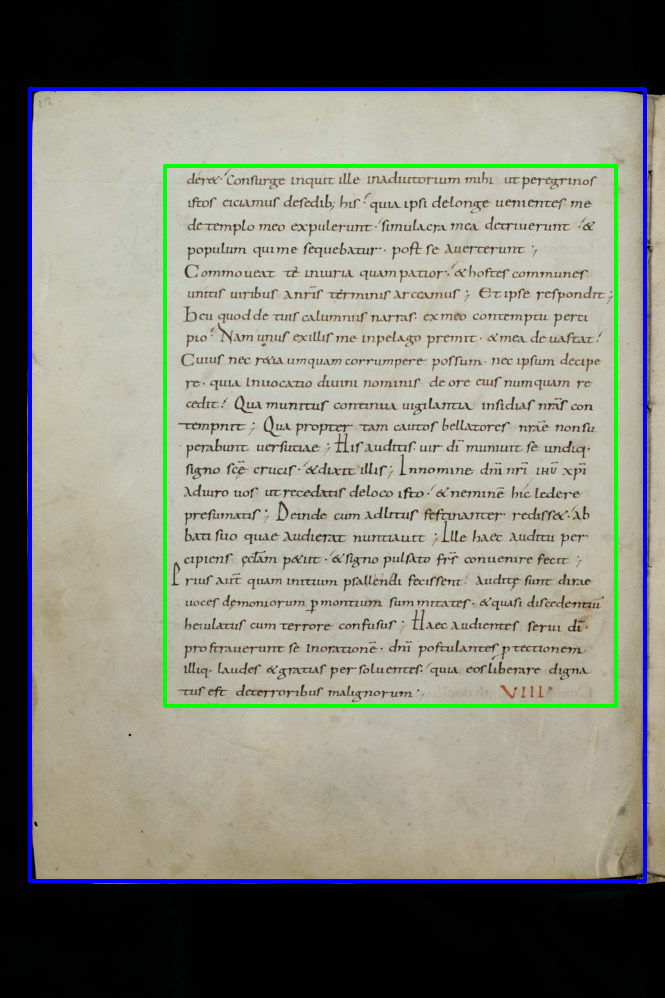 dere&. Consurge inquit ille inadiutorium mihi ut peregrinos
istos eiciamus desedib; his. quia ipsi delonge uenientes me
de templo meo expulerunt. simulacra mea detriuerunt. &
populum qui me sequebatur. post se auerterunt ;
Commoueat te iniuria quam patior. & hostes communes
unitis uiribus anr̄is terminis arceamus ; Et ipse respondit ;
Heu quod de tuis calumniis narras. ex meo contemptu perti
pio. Nam unus exillis me inpelago premit. & mea deuastat.
Cuius nec r&ia umquam corrumpere possum. nec ipsum decipe
re. quia Inuocatio diuini nominis de ore eius numquam re
cedit. Qua munitus continua uigilantia insidias nr̄as con
tempnit ; Qua propter tam cautos bellatores nr̄ae non su
perabunt uersutiae ; His auditis. uir dī muniuit se undiq.
signo sc̄e crucis. & dixit illis ; Innomine dn̄i nr̄i ihū xp̄i
Adiuro uos ut recedatis deloco isto. & neminē hic ledere
presumatis ; Deinde cum adlitus festinanter redisset. Ab
bati suo quae Audierat nuntiauit ; Ille haec auditu per
cipiens ęcłam p&iit. & signo pulsato fr̄s conuenire fecit ;
Prius aut̄ quam initium psallendi fecissent. Auditę sunt dirae
uoces demoniorum ꝑ montium summitates. & quasi discedentiū
heiulatus cum terrore confusus ; Haec audientes serui dī.
prostrauerunt se Inorationē. dn̄i postulantes ꝓtectionem
illiq. laudes & gratias persoluentes. quia eos liberare digna
tus est deterroribus malignorum ; VIIII